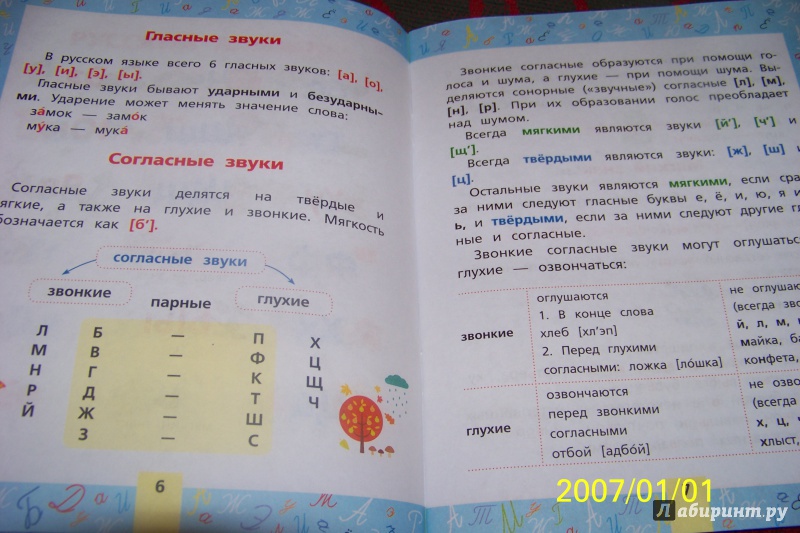 Гласные звуки
В русском языке всего 6 гласных звуков: [а], [о],
[у], [и], [э], [ы].
Гласные звуки бывают ударными и безударны-
ми. Ударение может менять значение слова:
за́мок — замо́к
му́ка — мука́
Согласные звуки
Согласные звуки делятся на твёрдые и
мягкие, а также на глухие и звонкие. Мягкость
обозначается как [б'].
согласные звуки
звонкие парные глухие
Л Б — П Х
М В — Ф Ц
Н Г — К Щ
Р Д — Т Ч
Й Ж — Ш
З — С
6
Звонкие согласные образуются при помощи го-
лоса и шума, а глухие — при помощи шума. Вы-
деляются сонорные («звучные») согласные [л], [м],
[н], [р]. При их образовании голос преобладает
над шумом.
Всегда мягкими являются звуки [й'], [ч'] и
[щ'].
Всегда твёрдыми являются звуки: [ж], [ш] и
[ц].
Остальные звуки являются мягкими, если сра
за ними следуют гласные буквы е, ё, и, ю, я и
ь, и твёрдыми, если за ними следуют другие гл
ные и согласные.
Звонкие согласные звуки могут оглушатьс
глухие — озвончаться:
звонкие
оглушаются
1. В конце слова
хлеб [хл'эп]
2. Перед глухими
согласными: ложка [ло́шка]
не оглуша
(всегда зво
й, л, м, 
майка, ба
конфета,
глухие
озвончаются
перед звонкими
согласными
отбой [адбо́й]
не озво
(всегда
х, ц, ч
хлыст,
2007/01/01
Лабиринт.ру